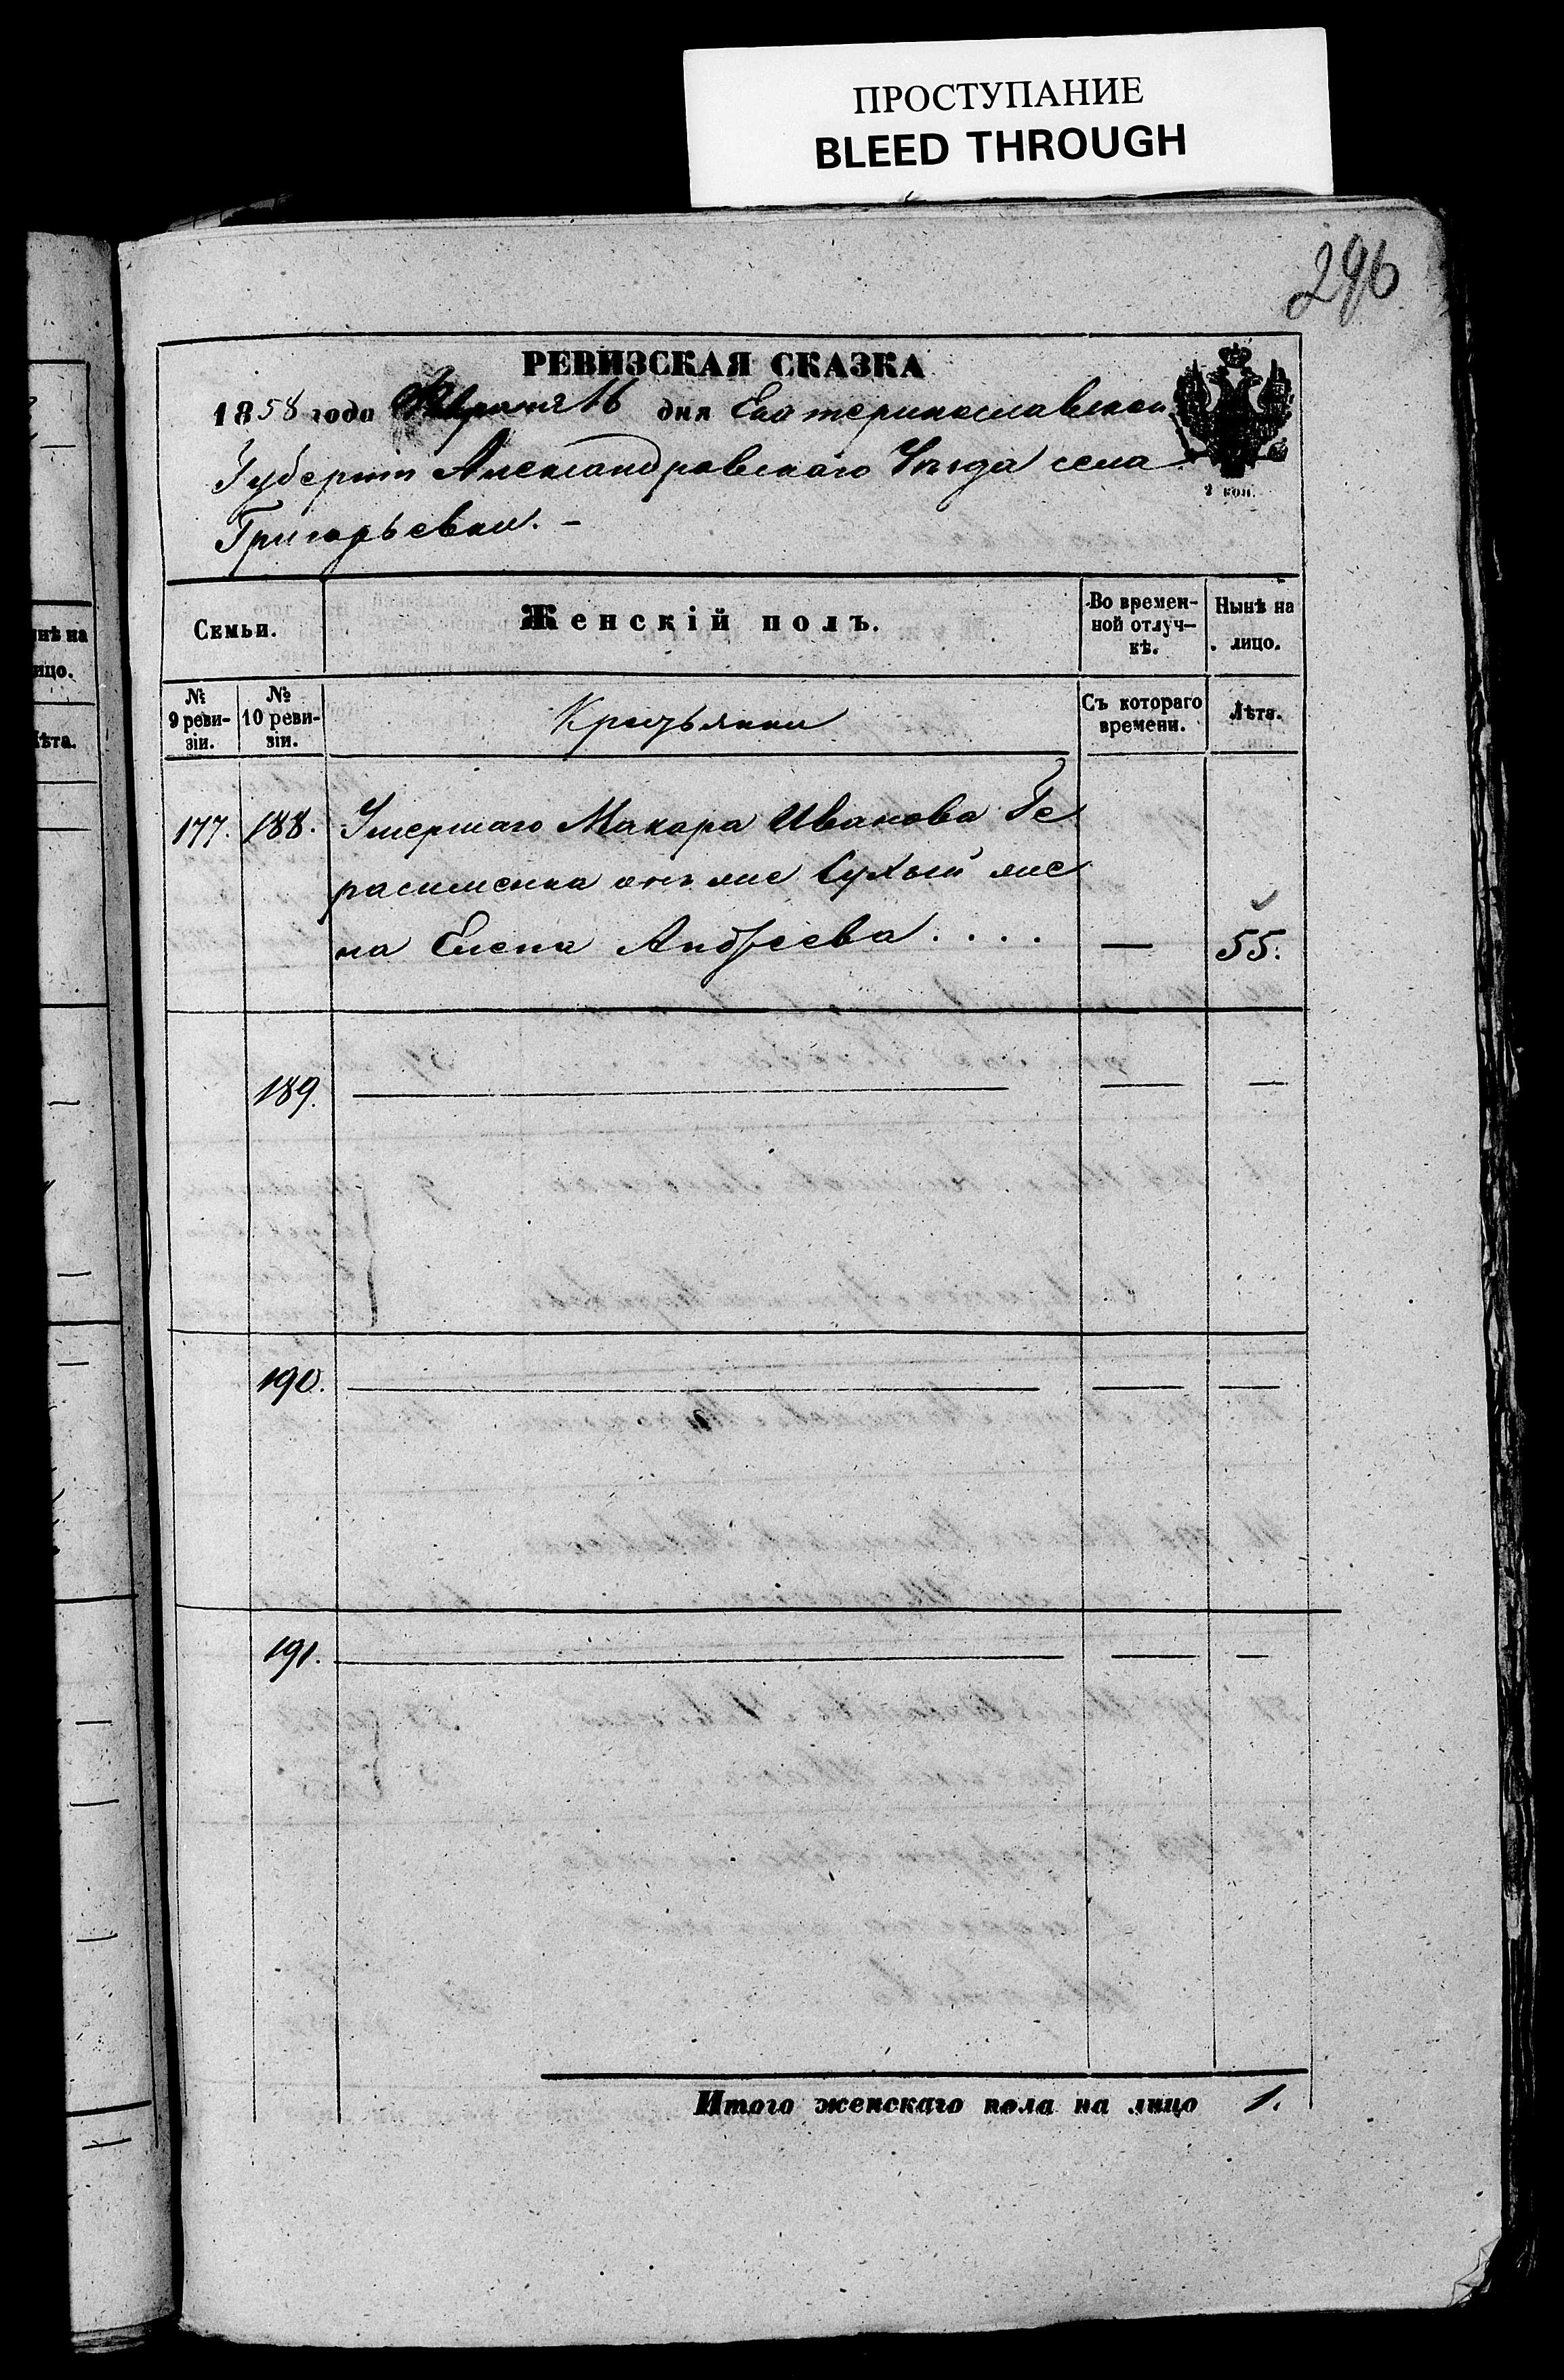 ПРОСТУПАНИЕ
BLEED THROUGH
296
РЕВИЗСКАЯ СКАЗКА
1858 года Февраля 16 дня Екатеринославской
Губерніи Александровскаго Уѣзда села
Григорьевки. –
2 коп.
Семьи.
Женскій полъ.
Во времен-
ной отлуч-
кѣ.
Нынѣ на
лицо.
№
9 реви-
зіи.
№
10 реви-
зіи.
Съ котораго
времени.
Лѣта.
177. 188. Умершаго Макара Иванова Ге
расименка онъ же Сухый же
на Елена Андреева . . . . — 55.
189. — — —
190. — — —
191. — — —
Итого женскаго пола на лицо 1.
нѣ на
ицо.
ѣта.